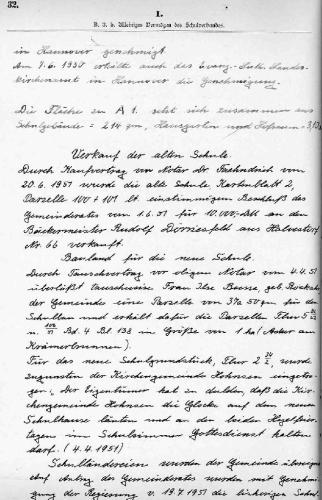 32.
I.
B. 3. b. Übriges Vermögen des Schulverbandes.
in Hannover genehmigt
Am 7.6.1950 erteilte auch das Evang.-luth. Landes-
kirchenamt in Hannover die Genehmigung.
Die Fläche zu A 1. setzt sich zusammen aus
Schulgebäude = 214 qm, Hausgarten und Hofraum =
Verkauf der alten Schule.
Durch Kaufvertrag vor Notar Dr. vom
20.6.1951 wurde die alte Schule, Kartenblatt 2,
Parzelle 100 + 101 lt. einstimmigen Beschluß des
Gemeinderates vom 1.6.51 für 10.000,- DM an den
Bäckermeister Rudolf Dörriesfeld aus Halvestorf
Nr. 66 verkauft.
Bauland für die neue Schule.
Durch Tauschvertrag vor obigen Notar vom 4.4.51
überläßt Frau Ilse Besse, geb.
der Gemeinde eine Parzelle von 37a 50 qm für den
Schulbau und erhält dafür die Parzellen Flur 5
u. Bd. 4 Bl 138 in Größe von 1 ha (Acker am
Krämerbrunnen).
Für das neue Schulgrundstück, Flur 2, wurde
zugunsten der Kirchengemeinde Hohnsen eingetra-
gen: Der Eigentümer hat zu dulden, daß die Kir-
chengemeinde Hohnsen die Glocke auf dem neuen
Schulhause läuten und an den beiden
tagen im Schulzimmer Gottesdienst halten
darf. (4.4.1951)
Schulländereien wurden der Gemeinde
Auf Antrag des Gemeinderates wurden mit Genehmi-
gung der Regierung v. 19.7.1951 die bisherigen